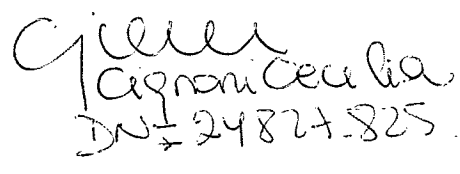 Cignoni Cecilia
DNI 24827.825.